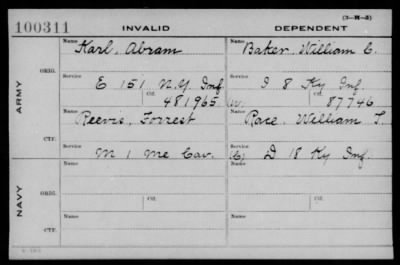 (3-H-3)
100311 INVALID DEPENDENT
Name Karl, Abram Name Baker, William C.
ARMY
ORIG. Service E 151 N.Y. Inf. Service I 8 Ky Inf.
Ctf. 481965 (W) Ctf. 87746
Name Reevis, Forrest Name Race, William T.
CTF. Service M 1 Me Cav. Service (C) D 18 Ky Inf.
NAVY
Name Name
ORIG. Service Ctf. Service Ctf.
Name Name
CTF. Service Service